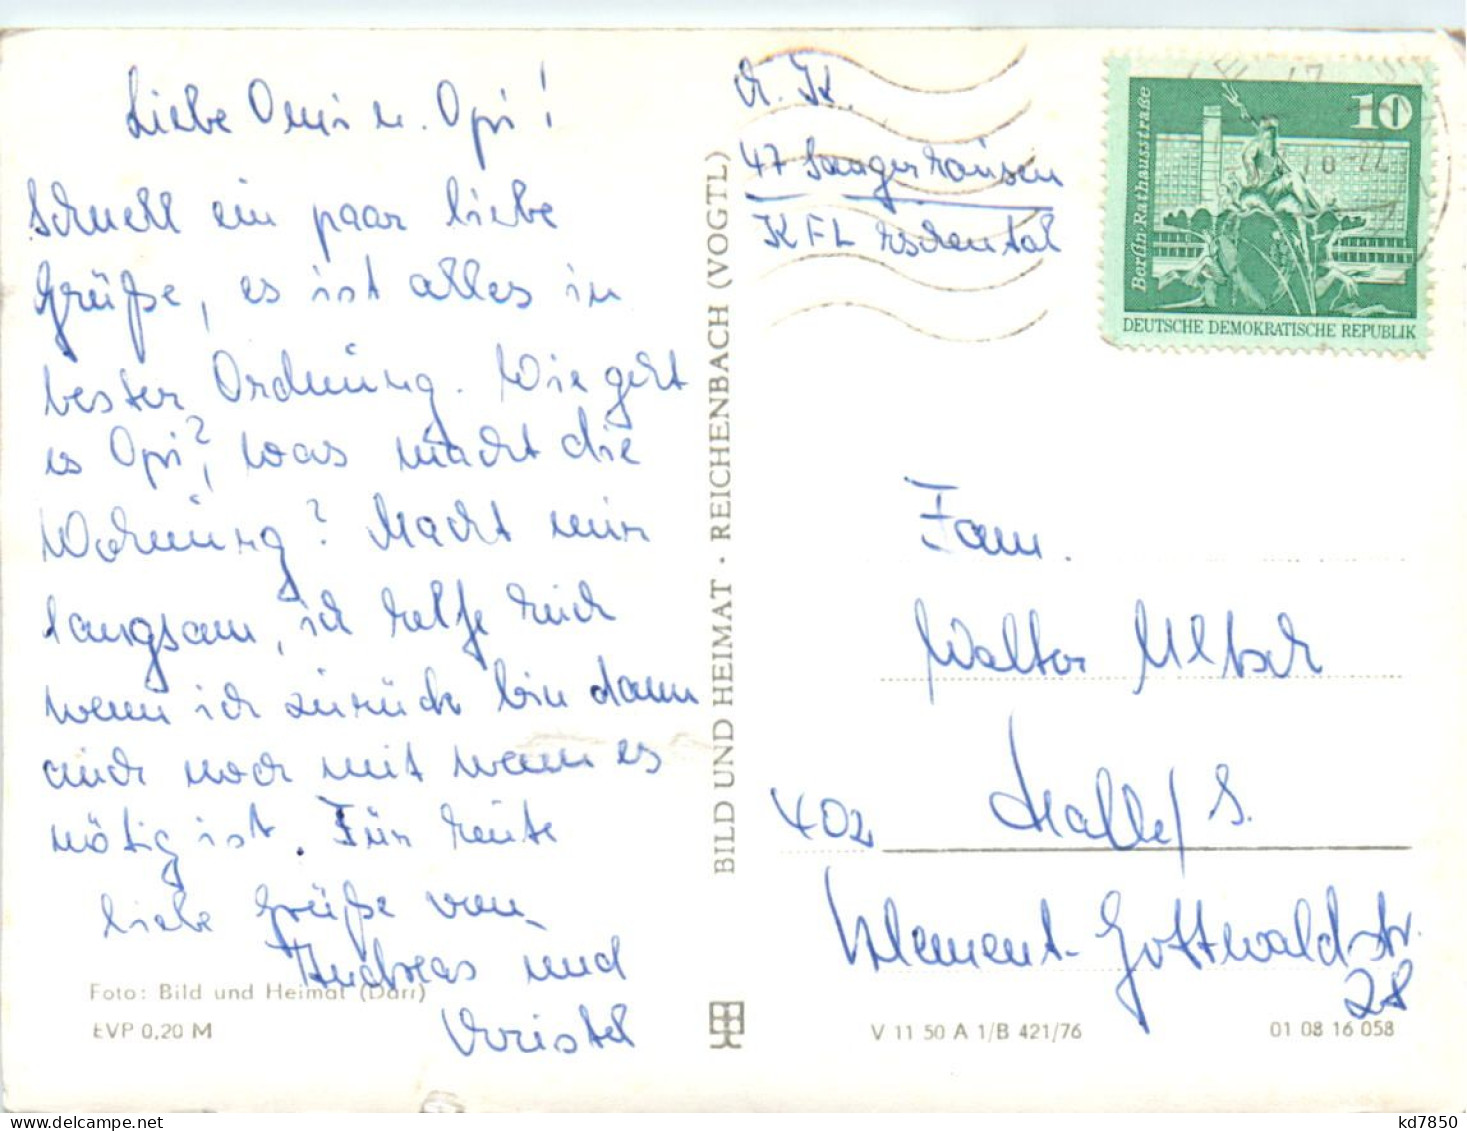 Liebe Omi u. Opi!
Schnell ein paar liebe
Grüße, es ist alles in
bester Ordnung. Wie geht
es Opi?, was macht die
Wohnung? Macht nur
langsam, ich helfe euch
wenn ich zurück bin dann
auch noch mit wenn es
nötig ist. Für heute
liebe Grüße von
Andreas und
Christel
Foto: Bild und Heimat (Darr)
EVP 0,20 M
BILD UND HEIMAT · REICHENBACH (VOGTL)
A. K.
47 Sangerhausen
KFL
10
Berlin-Rathausstraße
DEUTSCHE DEMOKRATISCHE REPUBLIK
Fam.
Walter
402 Halle/S.
Klement-Gottwaldstr.
28
V 11 50 A 1/B 421/76
01 08 16 058
kd7850